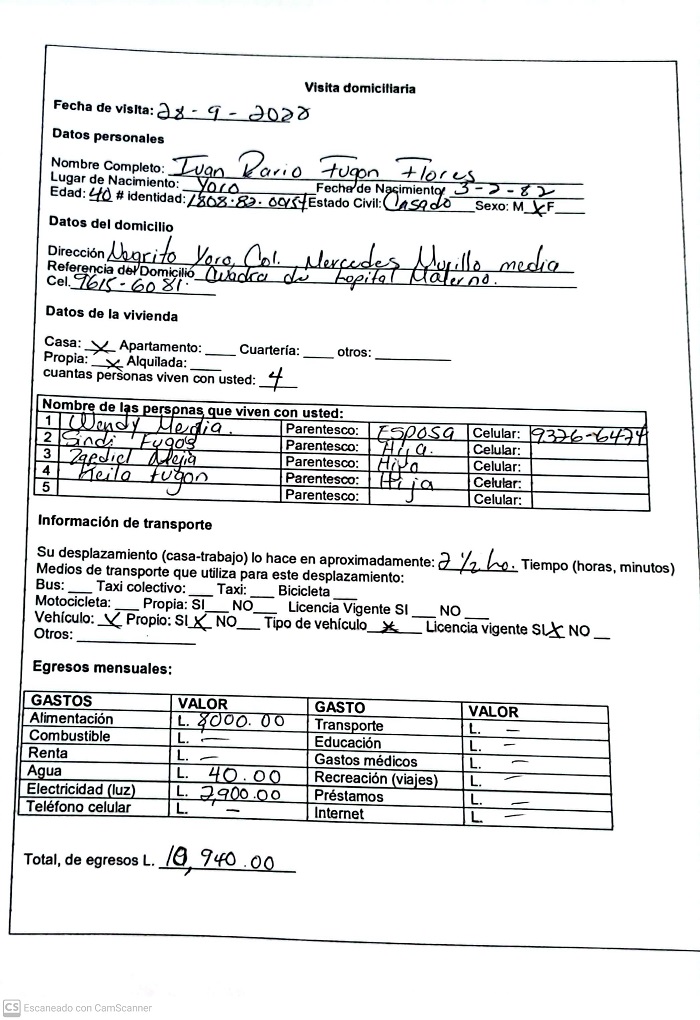 Visita domiciliaria
Fecha de visita: 28 - 9 - 2022
Datos personales
Nombre Completo: Ivan Dario Fugon Flores
Lugar de Nacimiento: Yoro Fecha de Nacimiento 3-2-82
Edad: 40 # identidad: 1808-82-00154 Estado Civil: Casado Sexo: M X F
Datos del domicilio
Dirección Negrito Yoro, Col. Mercedes Murillo media
Referencia del Domicilio Cuadra du hopital Materno.
Cel. 9615-6081.
Datos de la vivienda
Casa: X Apartamento: ____ Cuartería: ____ otros: ____
Propia: X Alquilada: ____
cuantas personas viven con usted: 4
Nombre de las personas que viven con usted:
1 Wendy Media. Parentesco: Esposa Celular: 9326-6474
2 Sindi Fugon Parentesco: Hija. Celular:
3 Mejia Parentesco: Hijo Celular:
4 Keila Fugon Parentesco: Hija Celular:
5 Parentesco: Celular:
Información de transporte
Su desplazamiento (casa-trabajo) lo hace en aproximadamente: 2 ½ ho. Tiempo (horas, minutos)
Medios de transporte que utiliza para este desplazamiento:
Bus: ___ Taxi colectivo: ___ Taxi: ___ Bicicleta ___
Motocicleta: ___ Propia: SI___ NO___ Licencia Vigente SI ___ NO ___
Vehículo: X Propio: SI X NO___ Tipo de vehículo X Licencia vigente SI X NO __
Otros: ____
Egresos mensuales:
GASTOS VALOR GASTO VALOR
Alimentación L. 8000.00 Transporte L. –
Combustible L. – Educación L. –
Renta L. – Gastos médicos L. –
Agua L. 40.00 Recreación (viajes) L. –
Electricidad (luz) L. 2,900.00 Préstamos L. –
Teléfono celular L. – Internet L. –
Total, de egresos L. 10,940.00
CS Escaneado con CamScanner